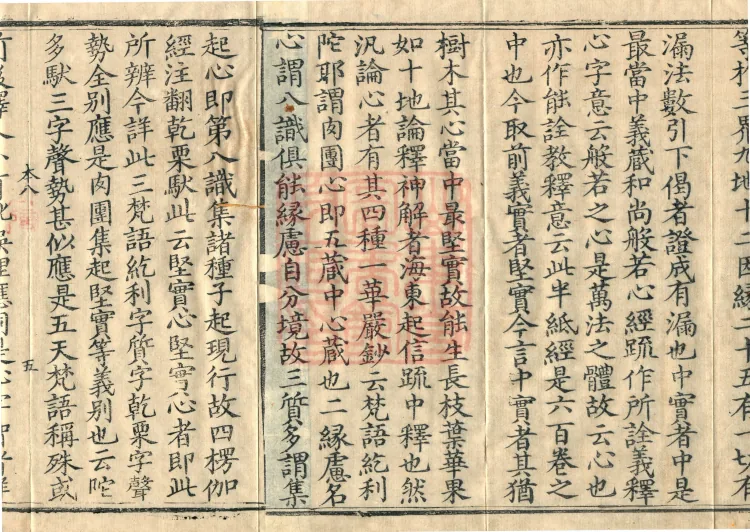 漏法數引下偈者證成有漏也中實者中是
最當中義蔵和尚般若心經䟽作所詮義釋
心字意云般若之心是萬法之體故云心也
亦作能詮教釋意云此半紙經是六百卷之
中也今取前義實者堅實今言中實者其猶
樹木其心當中最堅實故能生長枝葉華果
如十地論釋神解者海東起信䟽中釋也然
汎論心者有其四種一華嚴鈔云梵語紇利
陀耶謂肉團心即五蔵中心蔵也二縁慮名
心謂八識俱能縁慮自分境故三質多謂集
起心即第八識集諸種子起現行故四楞伽
經注翻乾栗馱此云堅實心堅實心者即此
所辨今詳此三梵語紇利字質字乾栗字聲
勢全别應是肉團集起堅實等義别也云陀
多馱三字聲勢甚似應是五天梵語稱殊或
本八
五